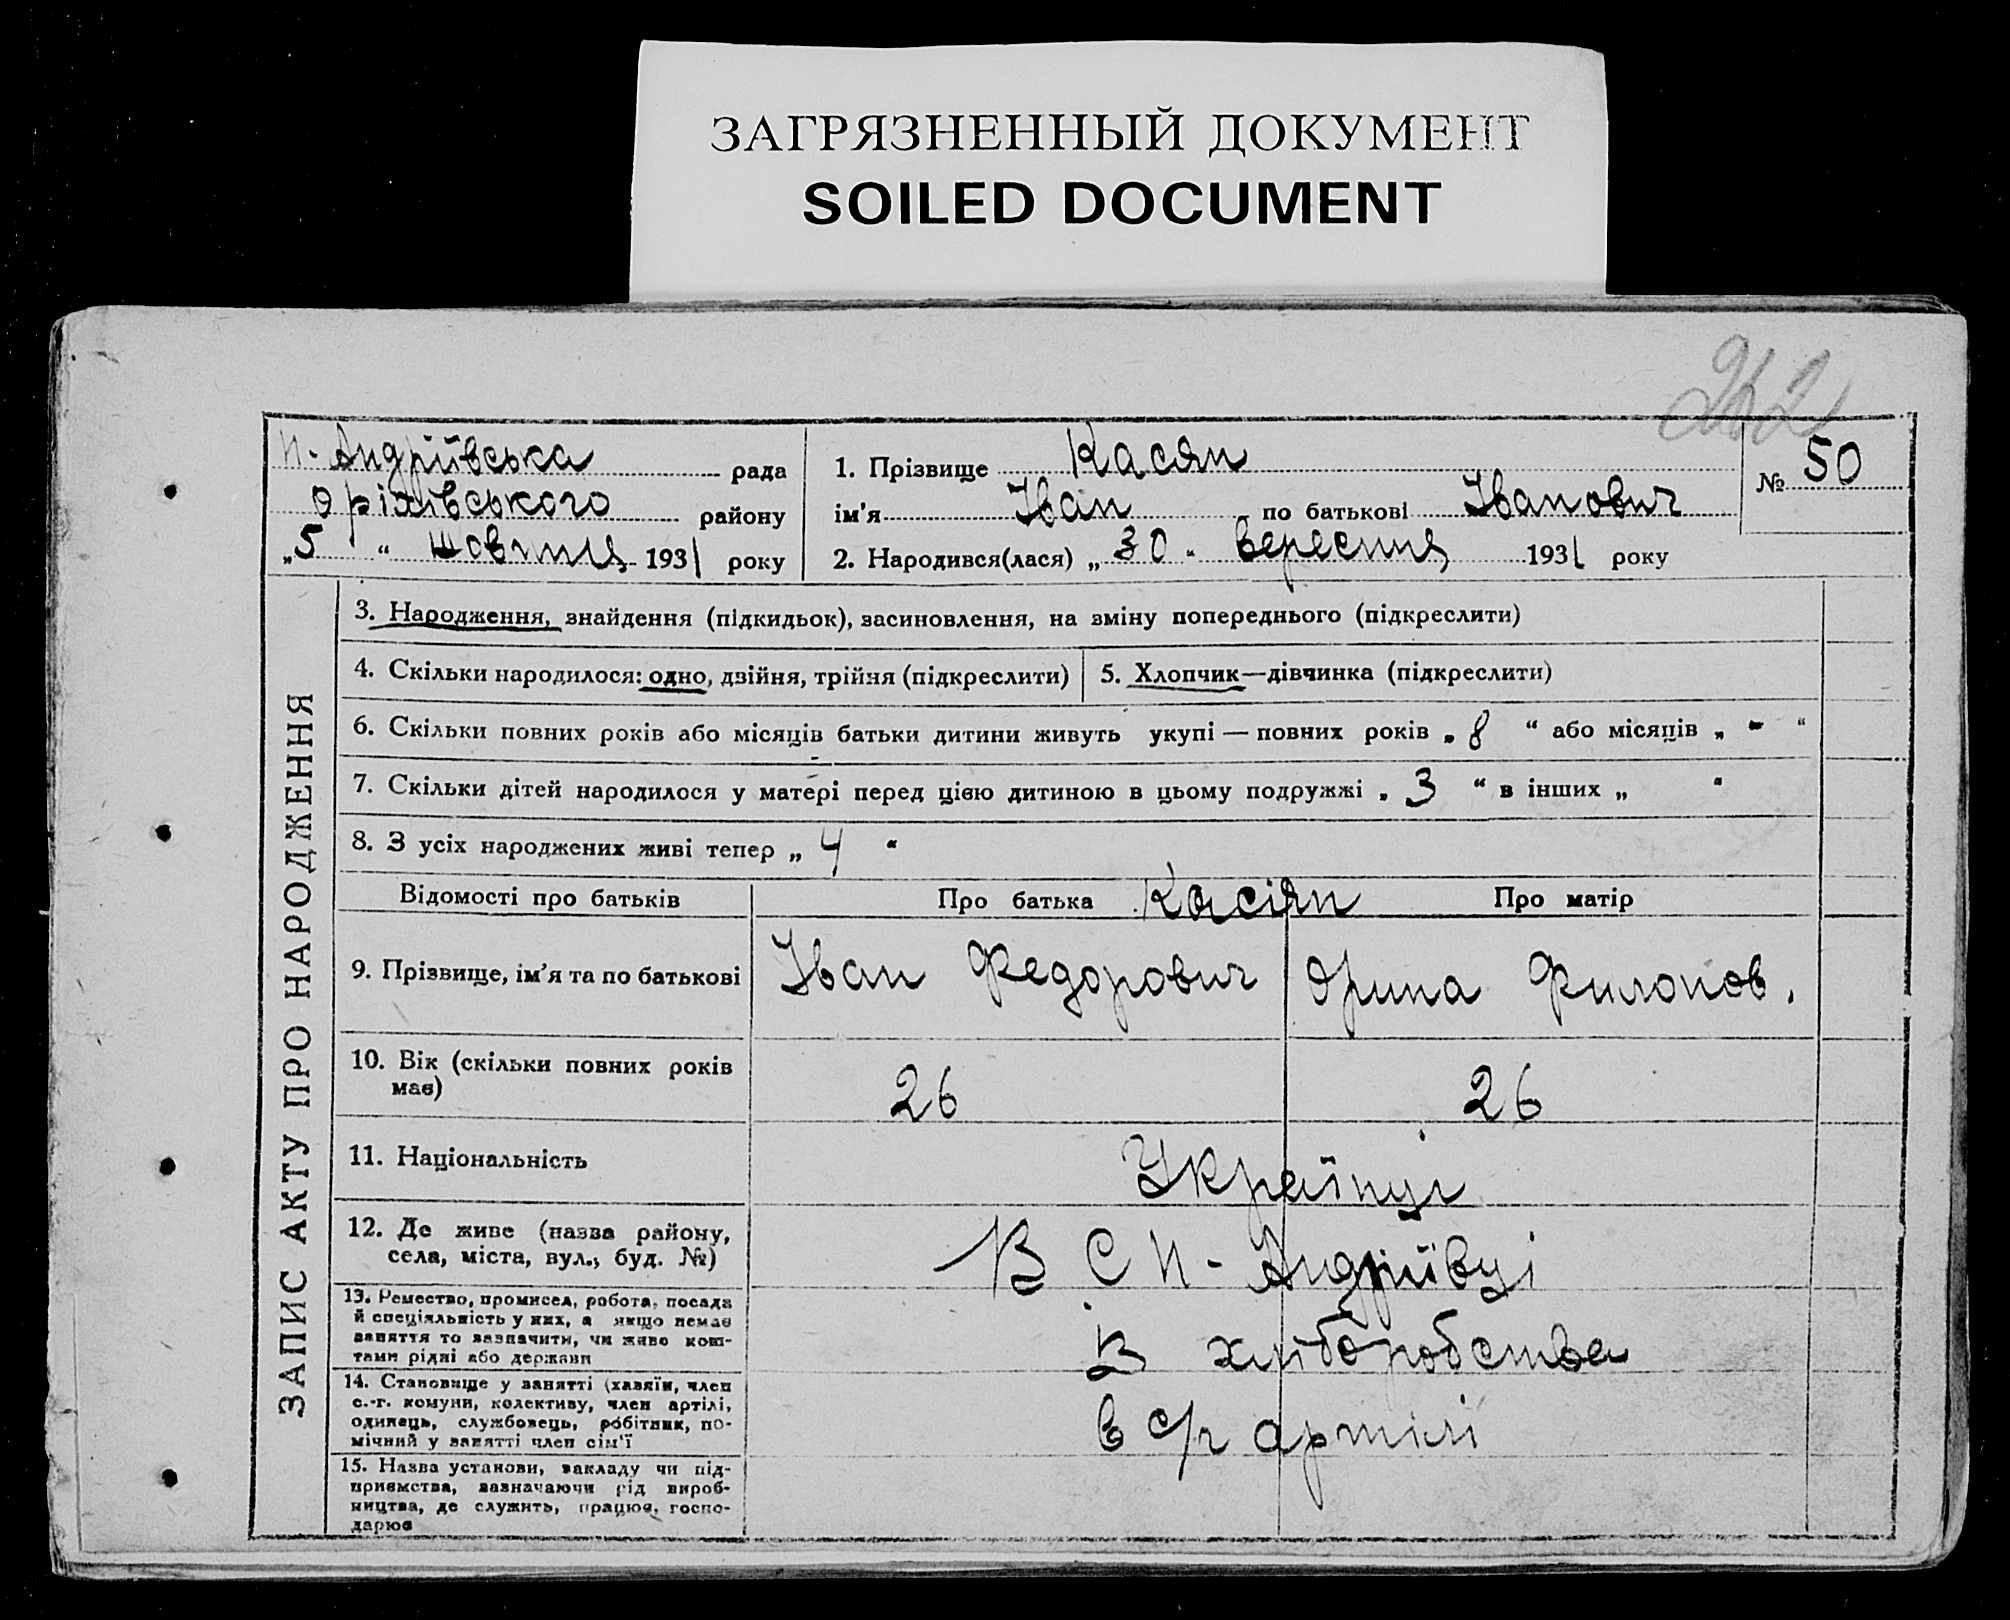 ЗАГРЯЗНЕННЫЙ ДОКУМЕНТ
SOILED DOCUMENT
262
Н-Андріївська рада
Оріхівського району
„5“ жовтня 1931 року
1. Прізвище Касян
ім'я Іван по батькові Іванович
2. Народився(лася) „30“ вересня 1931 року
№ 50
ЗАПИС АКТУ ПРО НАРОДЖЕННЯ
3. Народження, знайдення (підкидьок), засиновлення, на зміну попереднього (підкреслити)
4. Скільки народилося: одно, двійня, трійня (підкреслити)
5. Хлопчик—дівчинка (підкреслити)
6. Скільки повних років або місяців батьки дитини живуть укупі — повних років „8“ або місяців „-“
7. Скільки дітей народилося у матері перед цією дитиною в цьому подружжі „3“ в інших „ “
8. З усіх народжених живі тепер „4“
Відомості про батьків Про батька Касіян Про матір
9. Прізвище, ім'я та по батькові Іван Федорович Орина Филонов.
10. Вік (скільки повних років
має) 26 26
11. Національність Українці
12. Де живе (назва району,
села, міста, вул., буд. №) В С Н-Андріївці
13. Ремество, промисел, робота, посада
й спеціяльність у них, а якщо немає
заняття то зазначити, чи живе кош-
тами рідні або держави
В хліборобства
14. Становище у занятті (хазяїн, член
с.-г. комуни, колективу, член артілі,
одинець, службовець, робітник, по-
мічний у занятті член сім'ї
в с/г артілі
15. Назва установи, закладу чи під-
приємства, зазначаючи рід вироб-
ництва, де служить, працює, госпо-
дарює